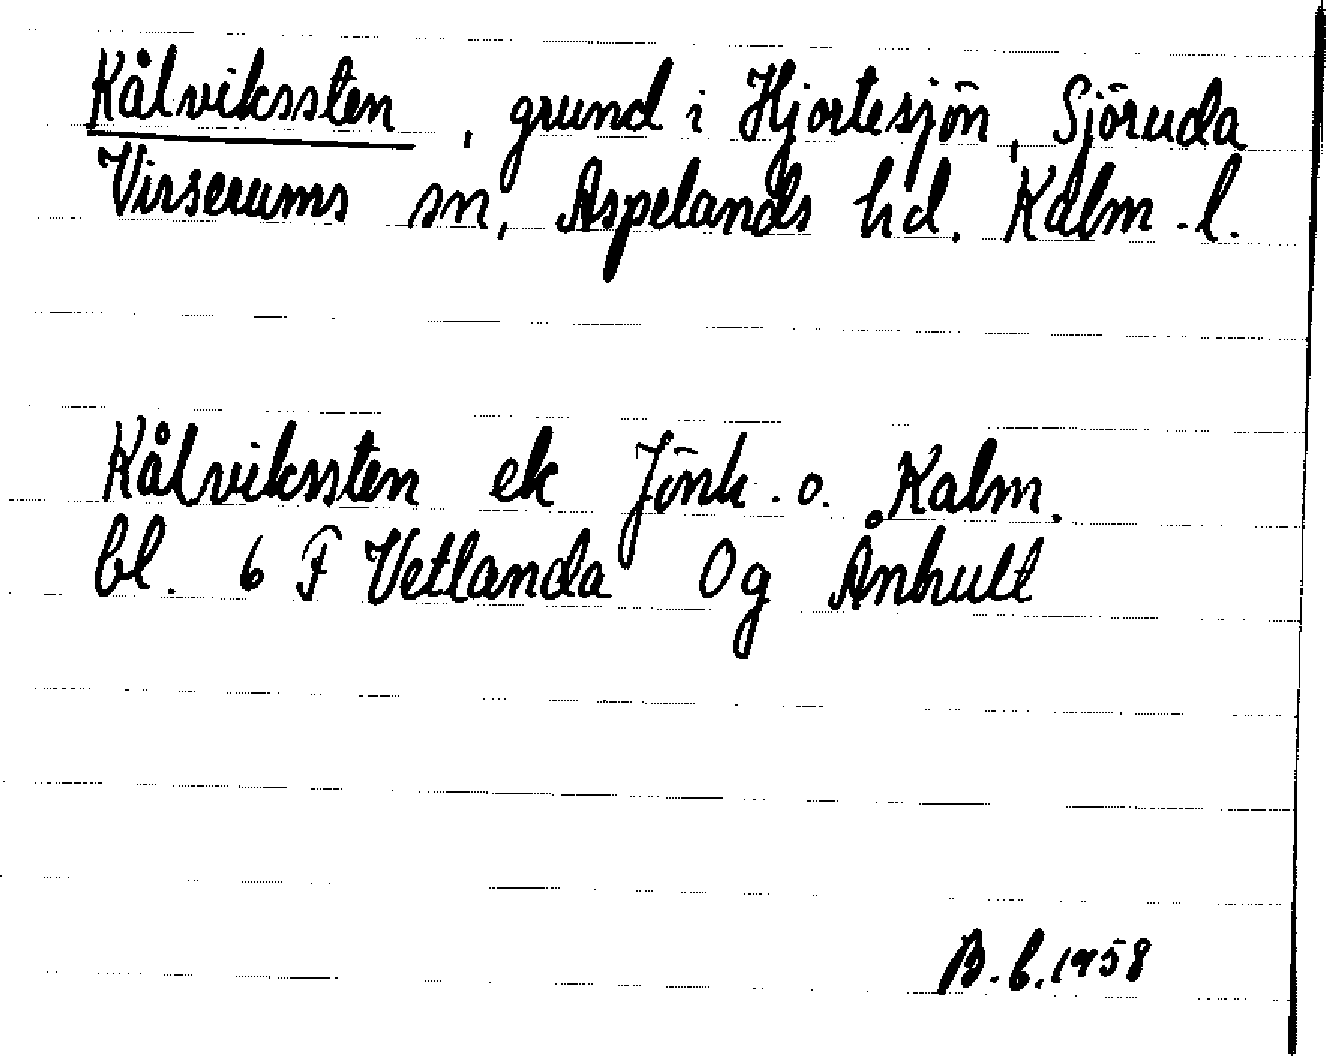 Kålvikssten, grund i Hjortesjön, Sjöruda
Virserums sn, Aspelands hd. Kalm.l.
Kålvikssten ek Jönk. o. Kalm.
bl. 6 F Vetlanda 0g Ånhult
B.b.1958